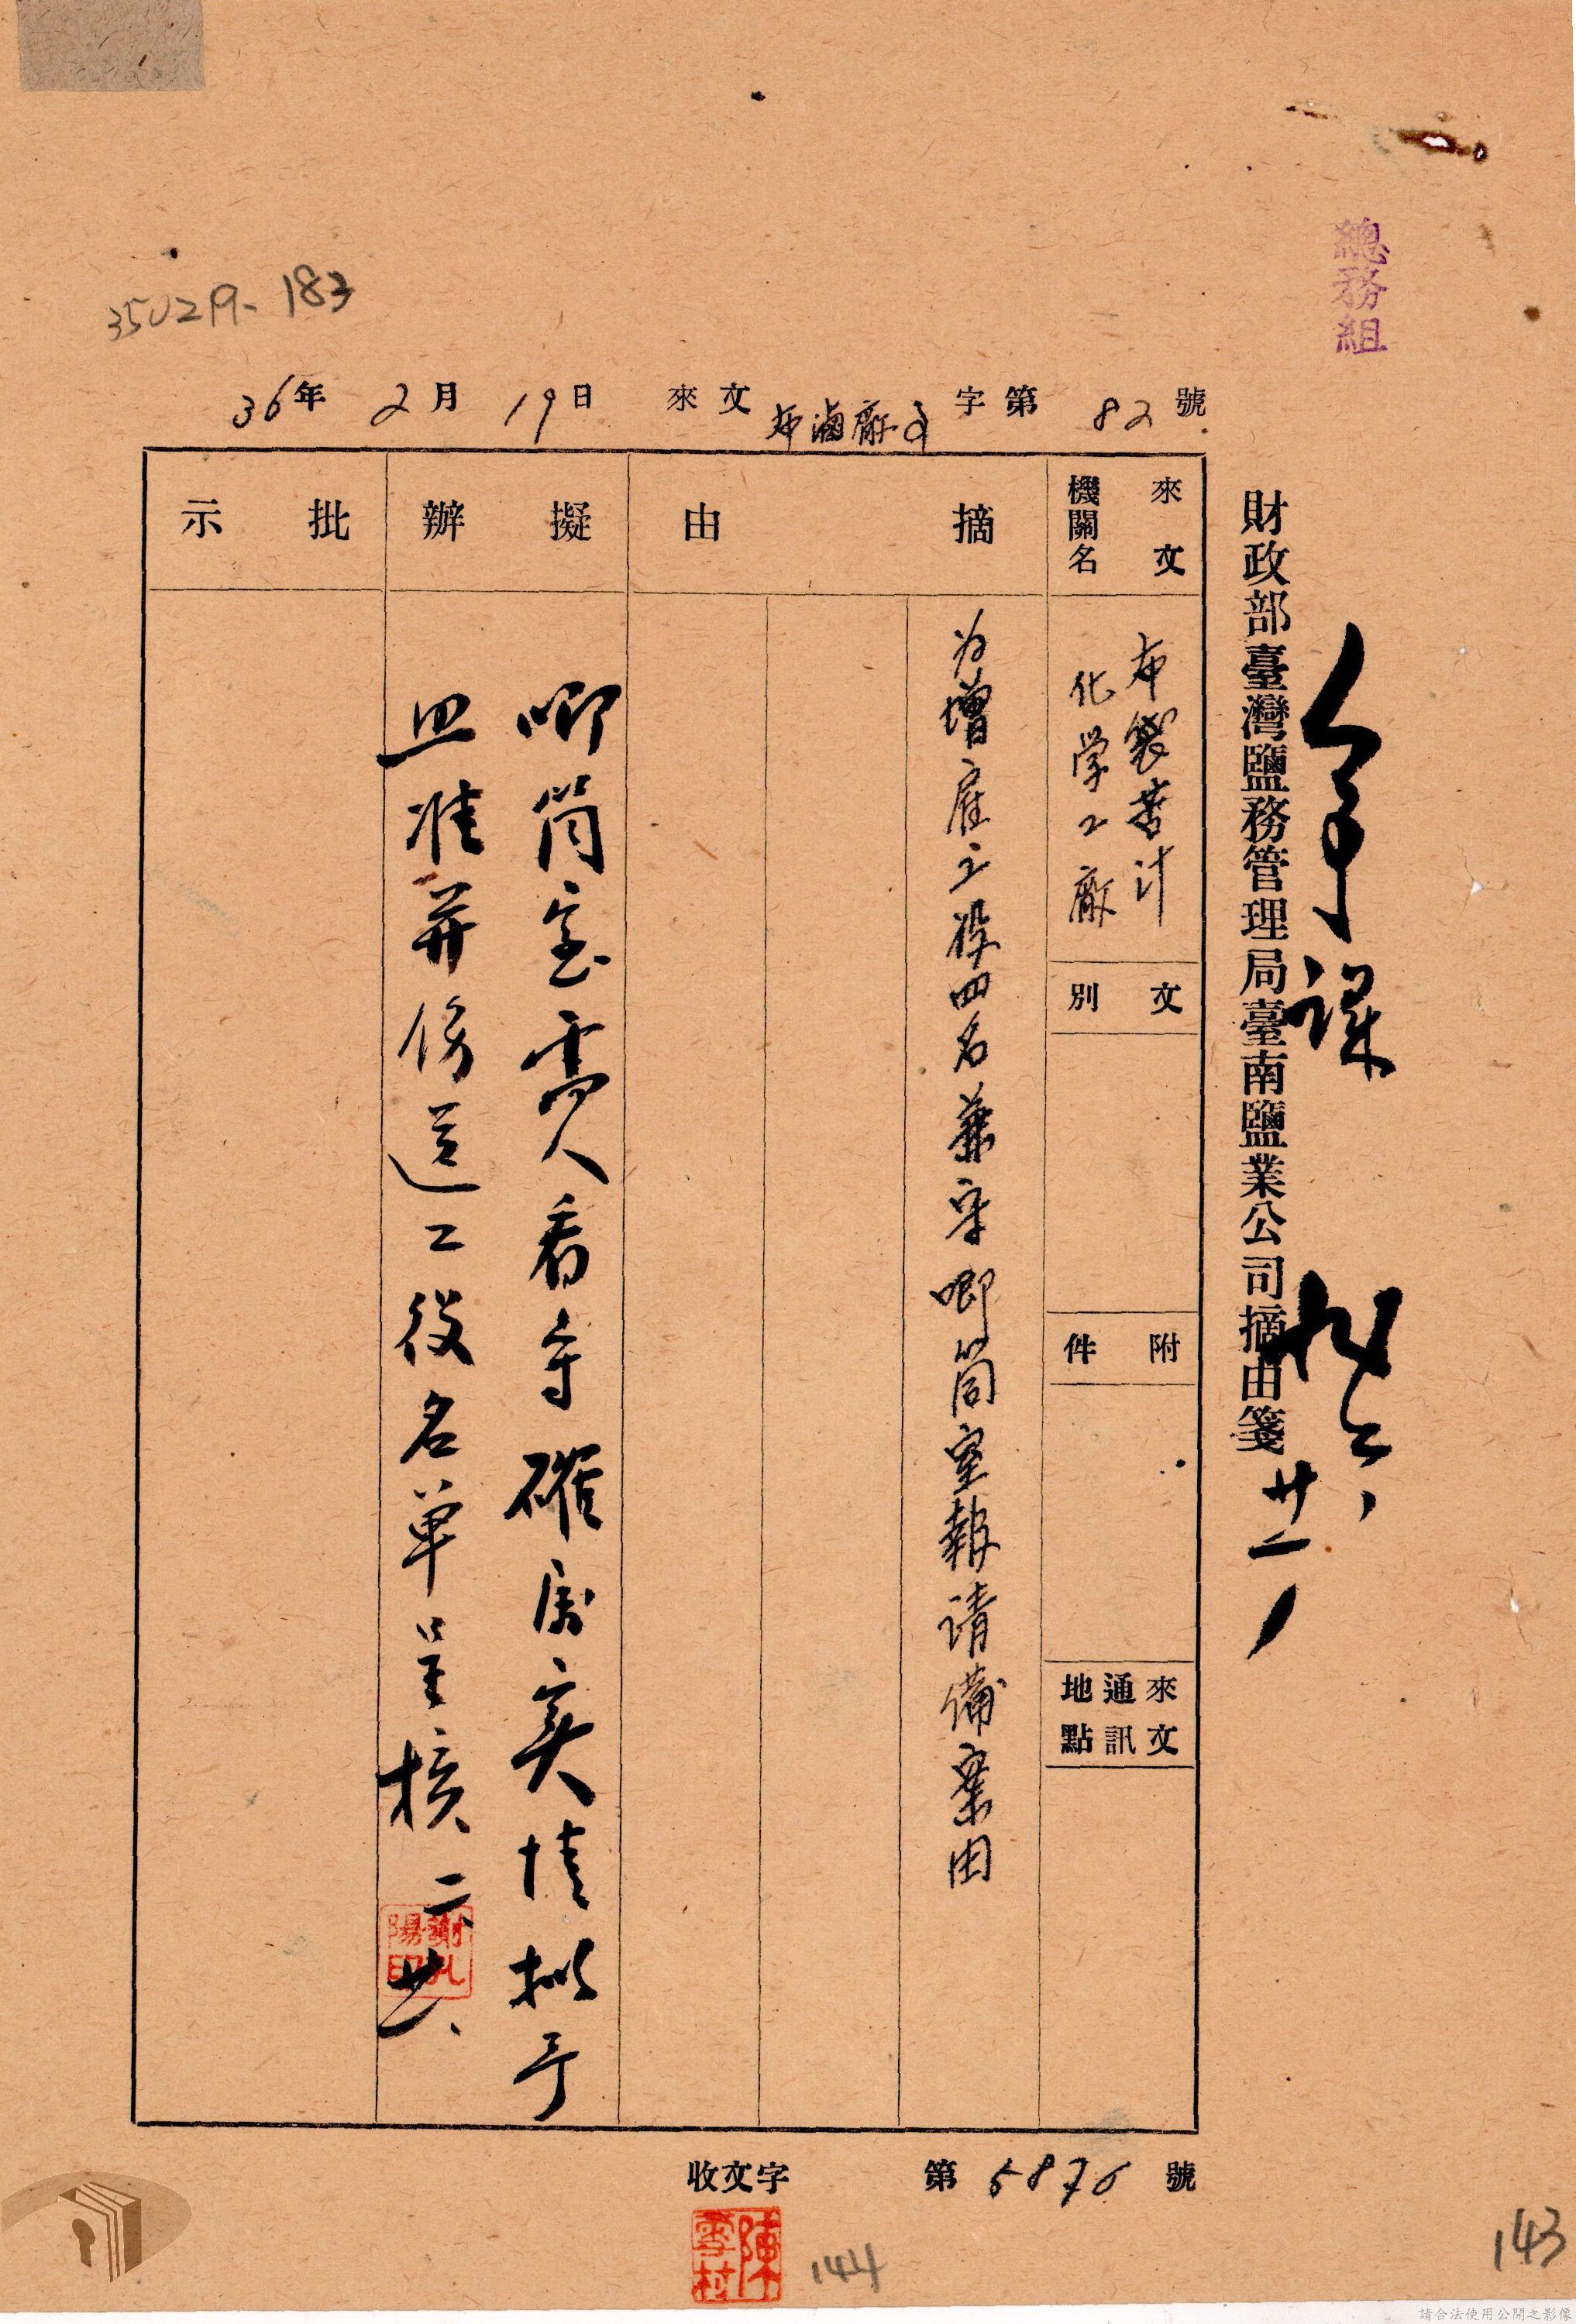 總務組
35029-183
財政部臺灣鹽務管理局臺南鹽業公司摘由箋
36年 2月 19日 來文 布滷廠 字第 82 號
來文機關名
布製苦汁
化学工廠
文別
附件
來文通訊地點
摘由
为增雇工役四名兼守唧筒室報請備案由
擬辦
唧筒室需人看守確屬实情拟予
照准并飭造工役名单呈核 二、廿、
謝孔陽印
批示
廿一
收文字 第 5876 號
陳雪村
144
143
請合法使用公開之影像